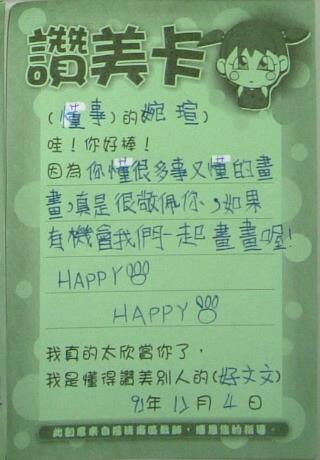 讚美卡
(懂事)的婉瑄
哇！你好棒！
因為你懂很多事又懂的畫
畫，真是很敬佩你，如果
有機會我們一起畫畫喔！
HAPPY
HAPPY
我真的太欣賞你了，
我是懂得讚美別人的(好文文)
91年12月4日